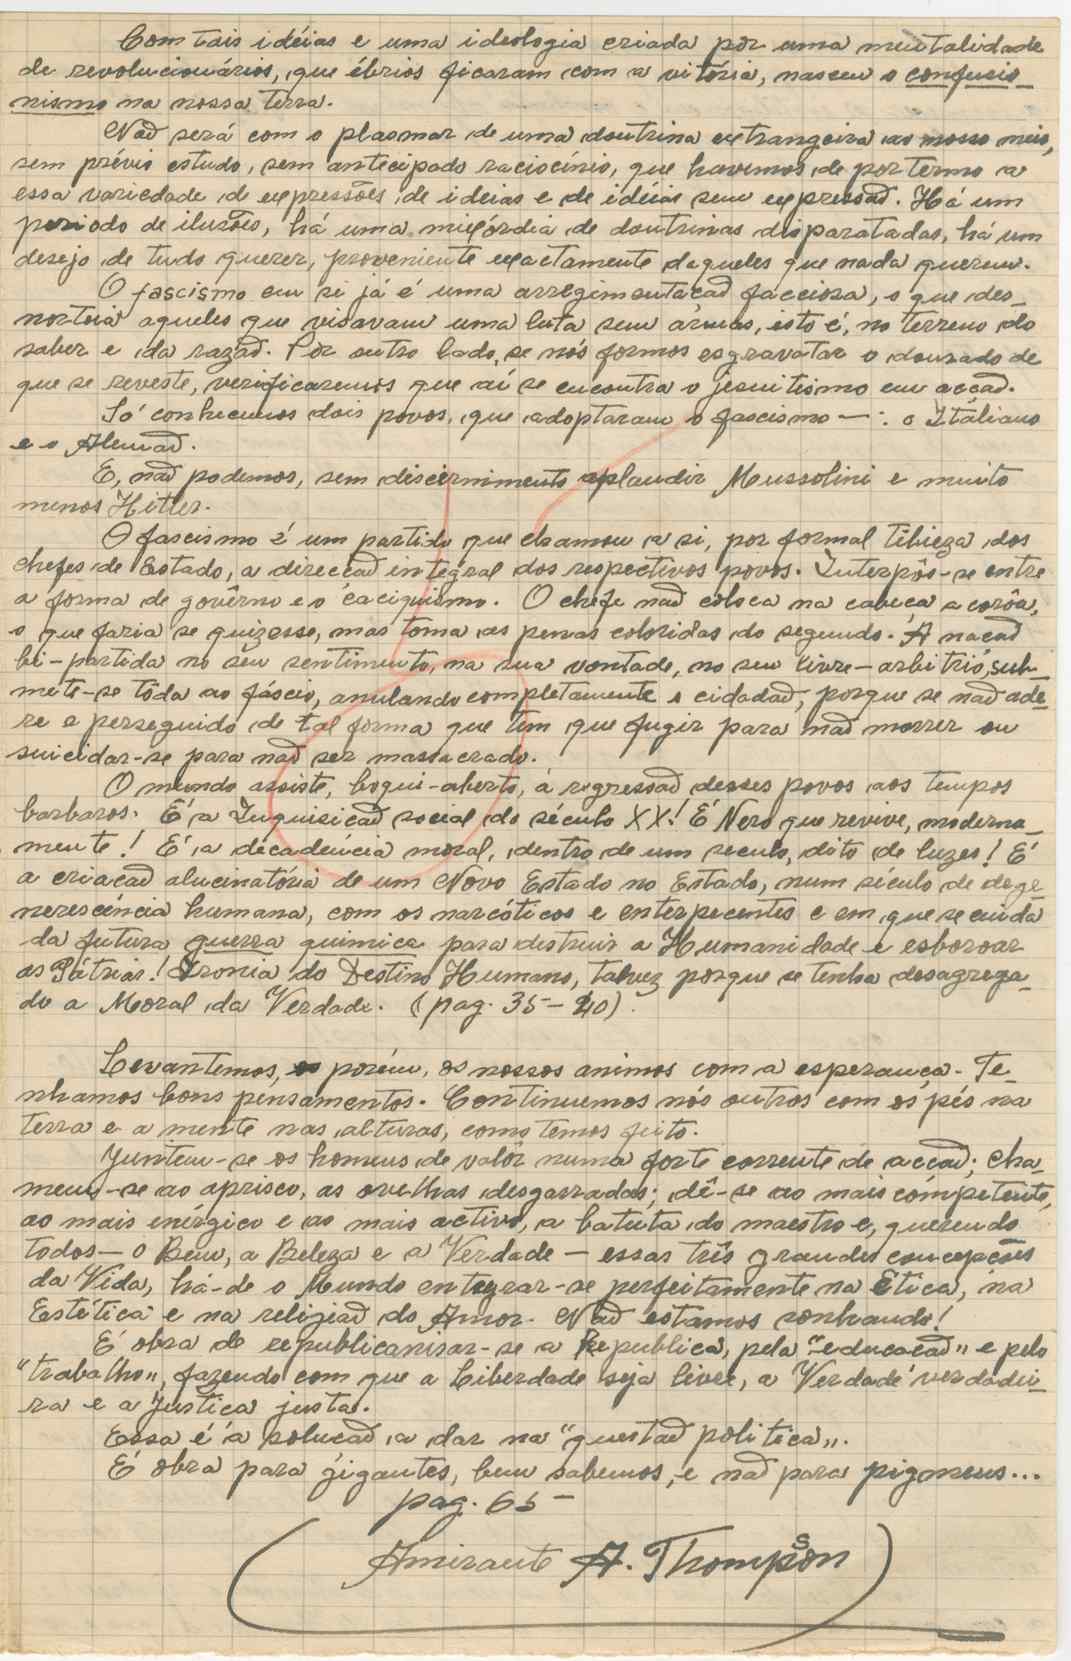 Com tais idéias e uma ideologia criada por uma mentalidade
de revolucionários, que ébrios ficaram com a vitória, nasceu o confusio-
nismo na nossa terra.
Não será com o plasmar de uma doutrina extrangeira ao nosso meio,
sem prévio estudo, sem antecipado raciocínio, que havemos de por termo a
essa variedade de expressões de ideias e de idéias sem expressão. Há um
periodo de ilusões, há uma mixórdia de doutrinas disparatadas, há um
desejo de tudo querer, proveniente exactamente daqueles que nada querem.
O fascismo em si já é uma arregimentação facciosa, o que des-
norteia aqueles que visavam uma luta sem armas, isto é, no terreno do
saber e da razão. Por outro lado, se nós formos esgravatar o dourado de
que se reveste, verificaremos que aí se encontra o jesuitismo em acção.
Só conhecemos dois povos, que adoptaram o fascismo — : o Italiano
e o Alemão.
E, não podemos, sem discernimento aplaudir Mussolini e muito
menos Hitler.
O fascismo é um partido que chamou a si, por formal tibieza dos
chefes de Estado, a direcção integral dos respectivos povos. Interpôs-se entre
a forma de govêrno e o caciquismo. O chefe não coloca na cabeça a corôa,
o que faria se quizesse, mas toma as penas coloridas do segundo. A nação
bi-partida no seu sentimento, na sua vontade, no seu livre-arbitrio, sub-
mete-se tôda ao fáscio, anulando completamente o cidadão, porque se não ade-
re e perseguido de tal forma que tem que fugir para não morrer ou
suicidar-se para não ser massacrado.
O mundo assiste, boqui-aberto, á regressão desses povos aos tempos
barbaros. É a Inquisição social do século XX! É Nero que revive, moderna-
mente! É a decadência moral, dentro de um seculo, dito de luzes! É
a criação alucinatória de um Novo Estado no Estado, num século de dege-
nerescência humana, com os narcóticos e enterpecentes e em que se cuida
da futura guerra quimica para destruir a Humanidade e esboroar
as Pátrias! Ironia do Destino Humano, talvez porque se tenha desagrega-
do a Moral da Verdade. (pag. 35-40).
Levantemos, porém, os nossos animos com a esperança. Te-
nhamos bons pensamentos. Continuemos nós outros com os pés na
terra e a mente nas alturas, como temos feito.
Juntem-se os homens de valôr numa forte corrente de acção; cha-
mem-se ao aprisco, as ovelhas desgarradas; dê-se ao mais competente,
ao mais enérgico e ao mais activo, a batuta do maestro e, querendo
todos — o Bem, a Beleza e a Verdade — essas três grandes concepções
da Vida, há-de o Mundo entegrar-se perfeitamente na Ética, na
Estética e na religião do Amor. Não estamos sonhando!
É obra de republicanisar-se a Republica, pela "educação" e pelo
"trabalho", fazendo com que a Liberdade seja livre, a Verdade verdadei-
ra e a Justiça justa.
Essa é a solução a dar na "questão politica".
É obra para gigantes, bem sabemos, e não para pigmeus...
pag. 65 -
(Amirante A. Thompson)